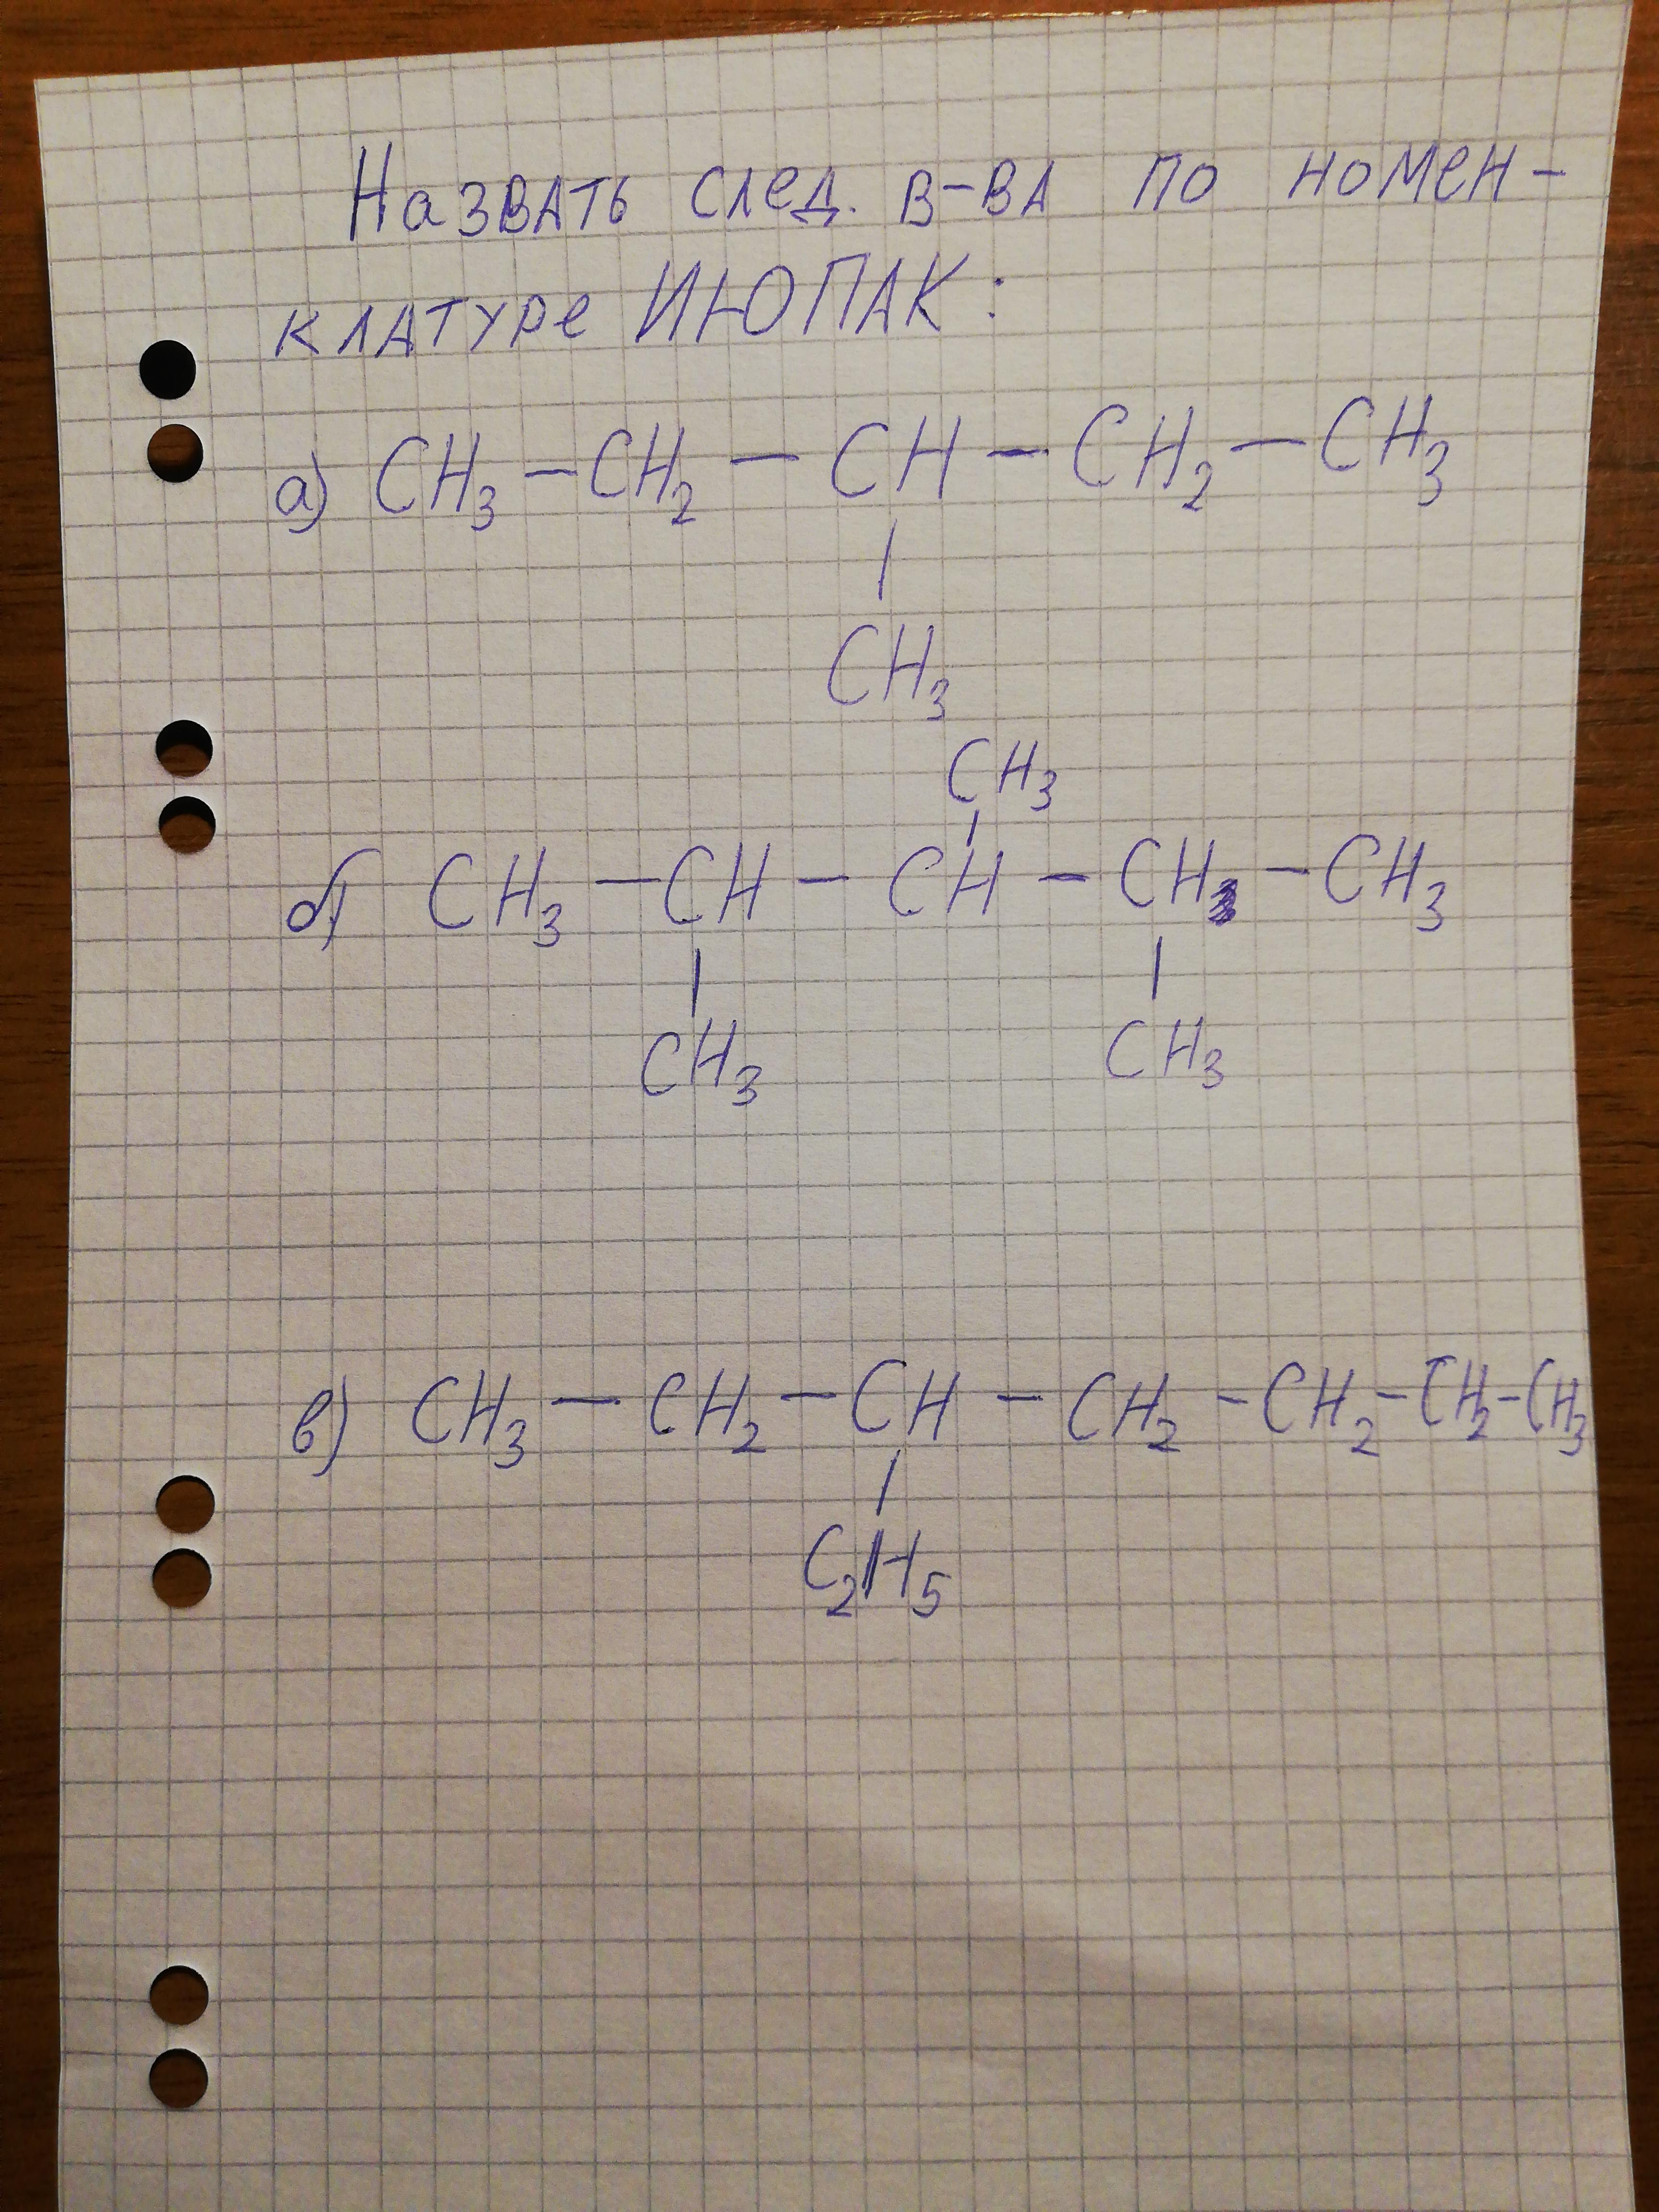 Назвать след. в-ва по номен-
клатуре ИЮПАК:
а) CH₃ — CH₂ — CH — CH₂ — CH₃
|
CH₃
CH₃
|
б) CH₃ — CH — CH — CH — CH₃
| |
CH₃ CH₃
в) CH₃ — CH₂ — CH — CH₂ - CH₂ - CH₂ - CH₃
|
C₂H₅